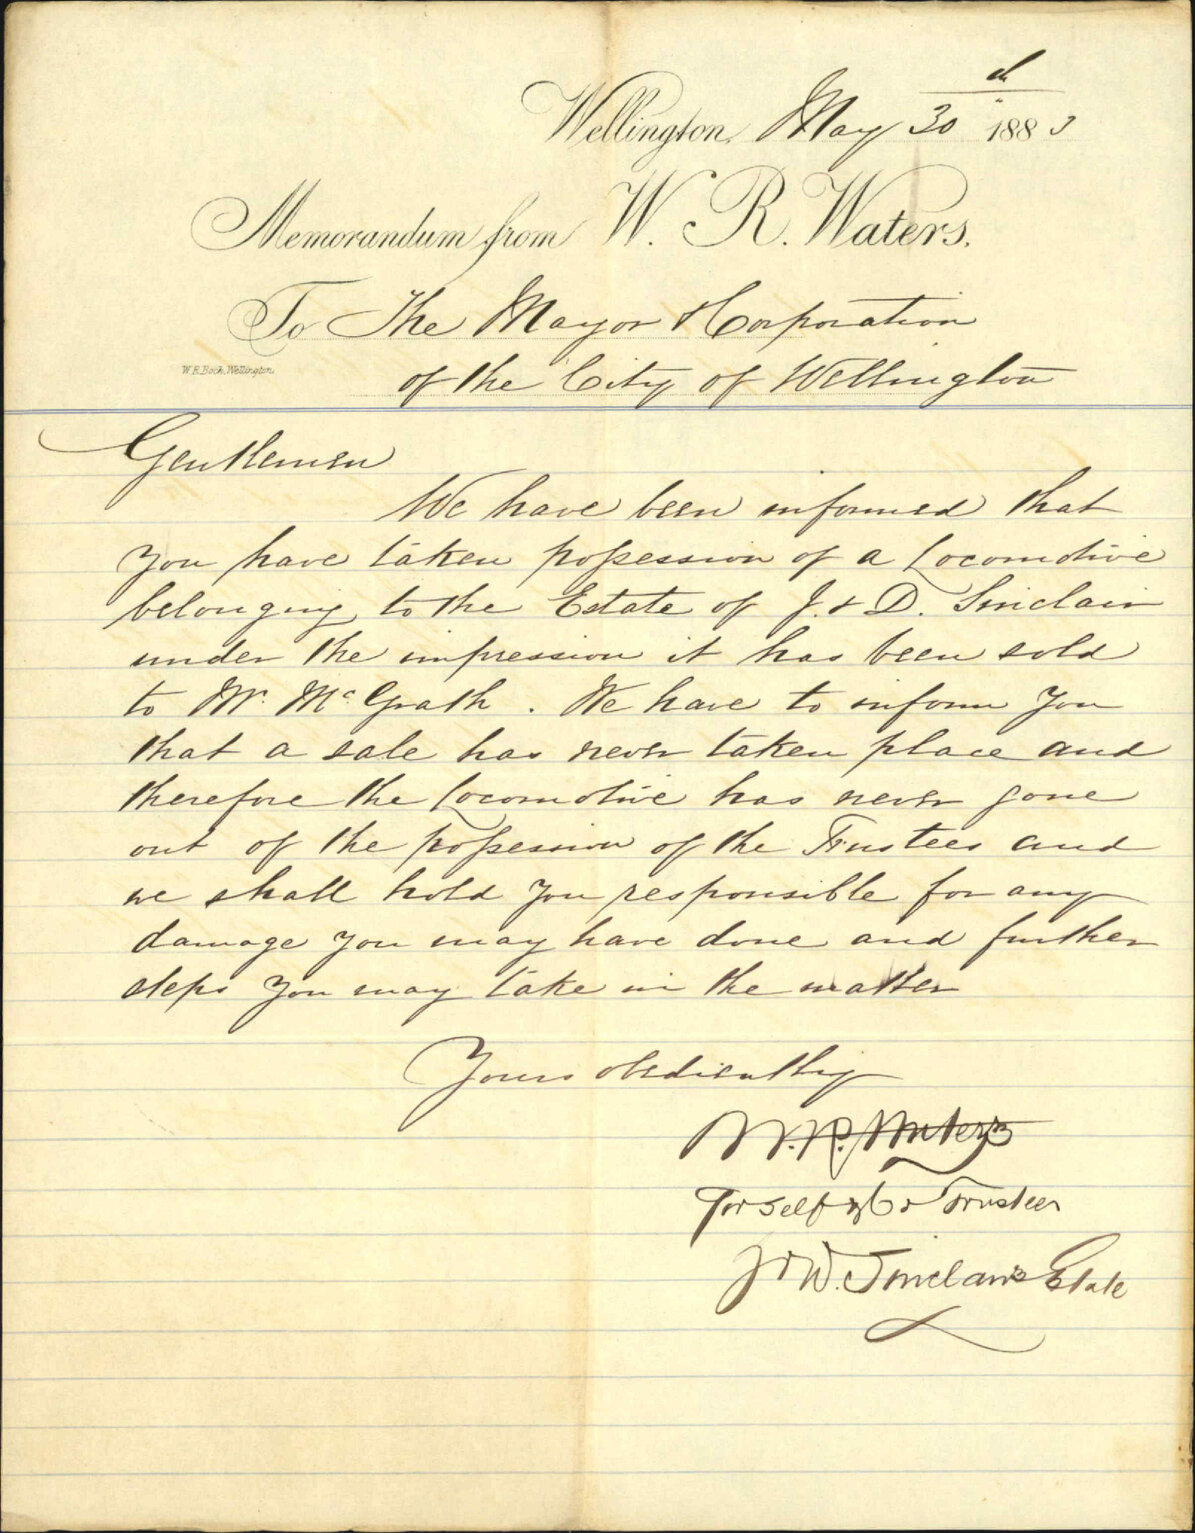 Wellington, May 30th 1883
Memorandum from W. R. Waters.
To The Mayor & Corporation
W.R.Bock, Wellington
of the City of Wellington
Gentlemen
We have been informed that
you have taken possession of a Locomotive
belonging to the Estate of J. & D. Sinclair
under the impression it has been sold
to Mr. McGrath. We have to inform you
that a sale has never taken place and
therefore the Locomotive has never gone
out of the possession of the Trustees and
we shall hold you responsible for any
damage you may have done and further
steps you may take in the matter
Yours obediently
W. R. Waters
For self & Co Trustees
J & W. Sinclair's Estate